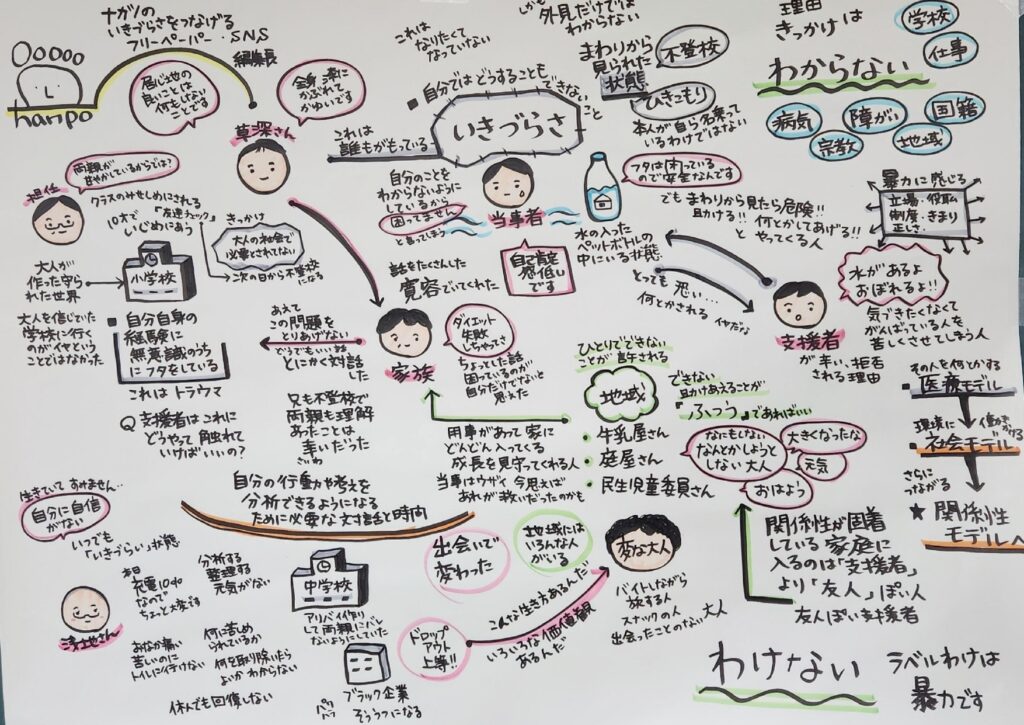 ナガノの
いきづらさをつなげる
フリーペーパー・SNS
編集長
hanpo
居心地の
良いことは
何もしない
ことです
全身漆に
かぶれて
かゆいです
草深さん
これは
なりたくて
なっていない
自分ではどうすることも
できない
こと
いきづらさ
これは
誰もがもっている
しかも
外見だけでは
わからない
まわりから
見られた
状態
不登校
ひきこもり
本人が自ら名乗って
いるわけではない
理由
きっかけは
わからない
学校
仕事
病気
障がい
国籍
宗教
地域
担任
両親が
甘やかしているからでは?
クラスのみをもしめにされる
「友達チェック」
10才で
いじめにあう
きっかけ
大人の社会で
必要とされてない
次の日から不登校
になる
大人が
作った守ら
れた世界
小学校
大人を信じていた
学校に行く
のがイヤという
ことではなかった
自分自身の
経験に
無意識のうち
にフタをしている
これはトラウマ
Q 支援者はこれに
どうやって触れて
いけばいいの?
自分のことを
わからないように
しているから
困ってません
と言ってしまう
当事者
自己肯定
感低い
です
フタは閉っている
ので安全なんです
水の入った
ペットボトルの
中にいる状態
でもまわりから見たら危険!!
助ける!! 何とかしてあげる!!
と やってくる人
とっても 恐い…
何とかされる イヤだな
暴力に感じる
立場・役職
制度・きまり
正しさ
水があるよ
おぼれるよ!!
支援者
気づきたくなくて
がんばっている人を
苦しくさせてしまう人
が辛い、拒否
される理由
話をたくさんした
寛容でいてくれた
あえて
この問題を
とりあげない
どうでもいい話
とにかく対話
した
家族
ダイエット
失敗
しちゃって
ちょっとした話
困っているのが
自分だけでないと
思えた
兄も不登校で
両親も理解
あったことは
幸いだった
さいわ
ひとりでできない
ことが許される
地域
できない
助けあえることが
『ふつう』であればいい
用事があって家に
どんどん入ってくる
成長を見守ってくれる人
当事はウザく今思えば
あれが救いだったのかも
牛乳屋さん
庭屋さん
民生児童委員さん
なにもしない
なんとかしようと
しない大人
大きくなったな
元気
おはよう
その人を何とかする
医療モデル
環境に働きかける
社会モデル
さらに
つながる
★関係性
モデルへ
関係性が固着
している家庭に
入るのは「支援者」
より「友人」ぽい人
友人ぽい支援者
自分の行動力や考えを
分析できるようになる
ために必要な対話と時間
生きていて すみません…
自分に自信
がない
いつでも
「いきづらい」状態
本日
充電10%
なので
ちょっと大変です
分析する
整理する
元気がない
おなか痛い
苦しいのに
トイレに行けない
何に苦しめ
られているか
何を取り除いたら
よいかわからない
休んでも回復しない
中学校
アリバイ作り
して両親にバレ
ないようにしていた
ブラック企業
そううつになる
出会いで
変わった
地域には
いろんな人
がいる
変な大人
ドロップ
アウト
上等!!
こんな生き方あるんだ
いろいろな価値観
あるんだ
バイトしながら
旅する人
スナックの人
出会ったことのない大人
わけない
ラベルわけは
暴力です